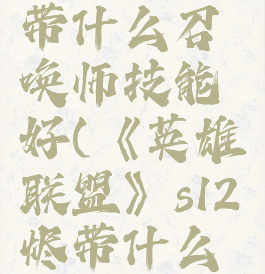 带什么召
唤师技能
好(《英雄
联盟》s12
烬带什么